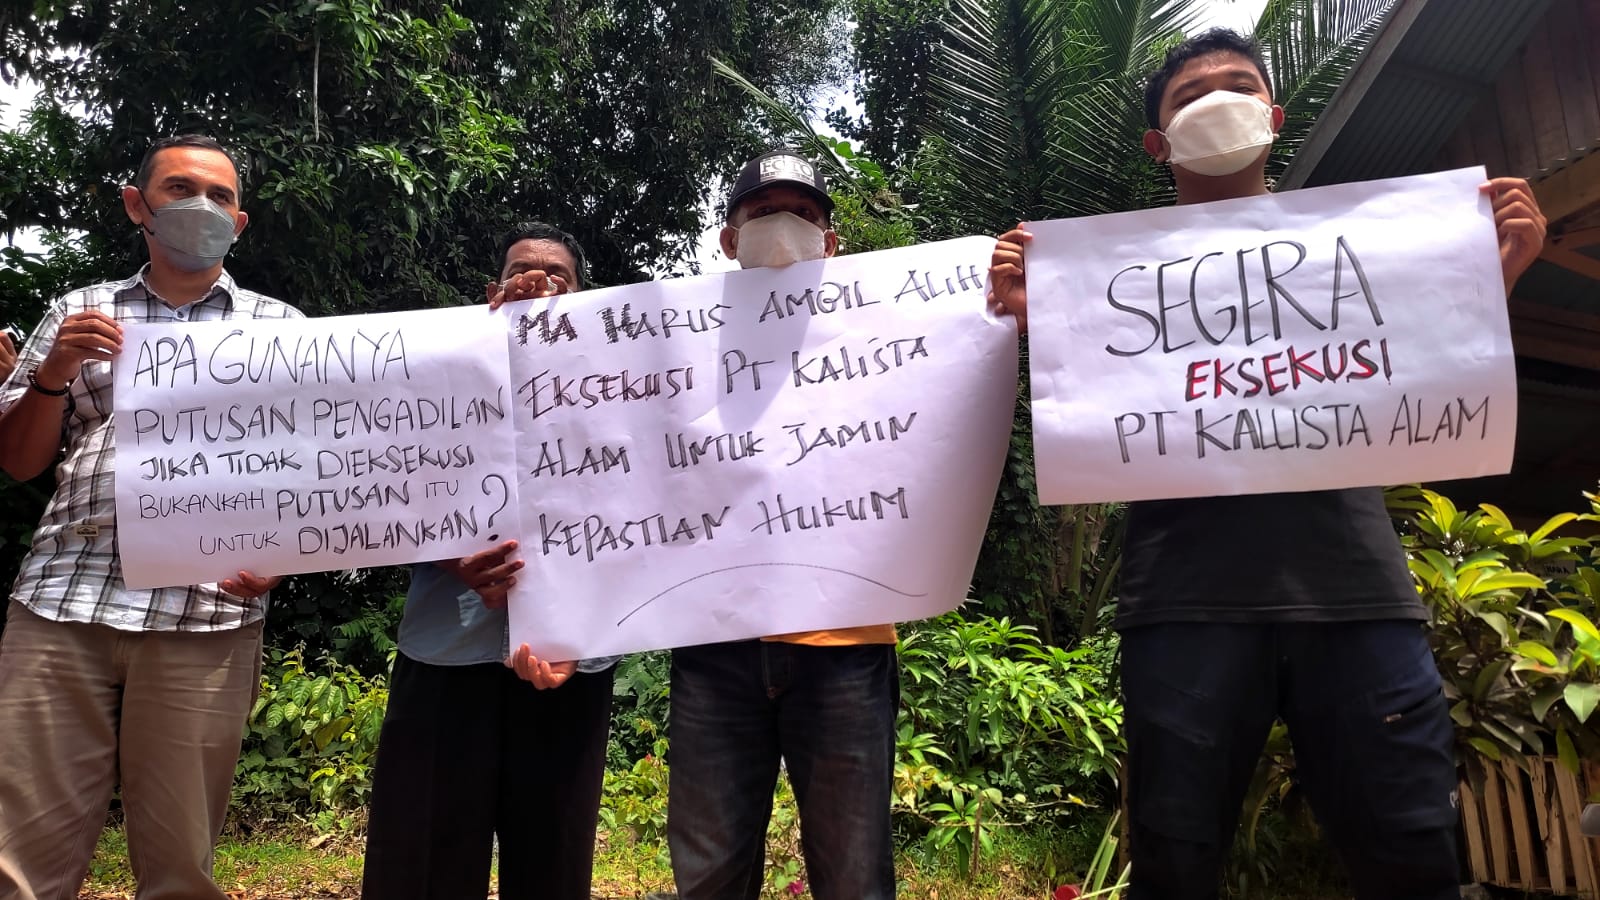 APA GUNANYA
PUTUSAN PENGADILAN
JIKA TIDAK DIEKSEKUSI
BUKANKAH PUTUSAN ITU
UNTUK DIJALANKAN?
MA HARUS AMBIL ALIH
EKSEKUSI PT KALISTA
ALAM UNTUK JAMIN
KEPASTIAN HUKUM
SEGERA
EKSEKUSI
PT KALLISTA ALAM